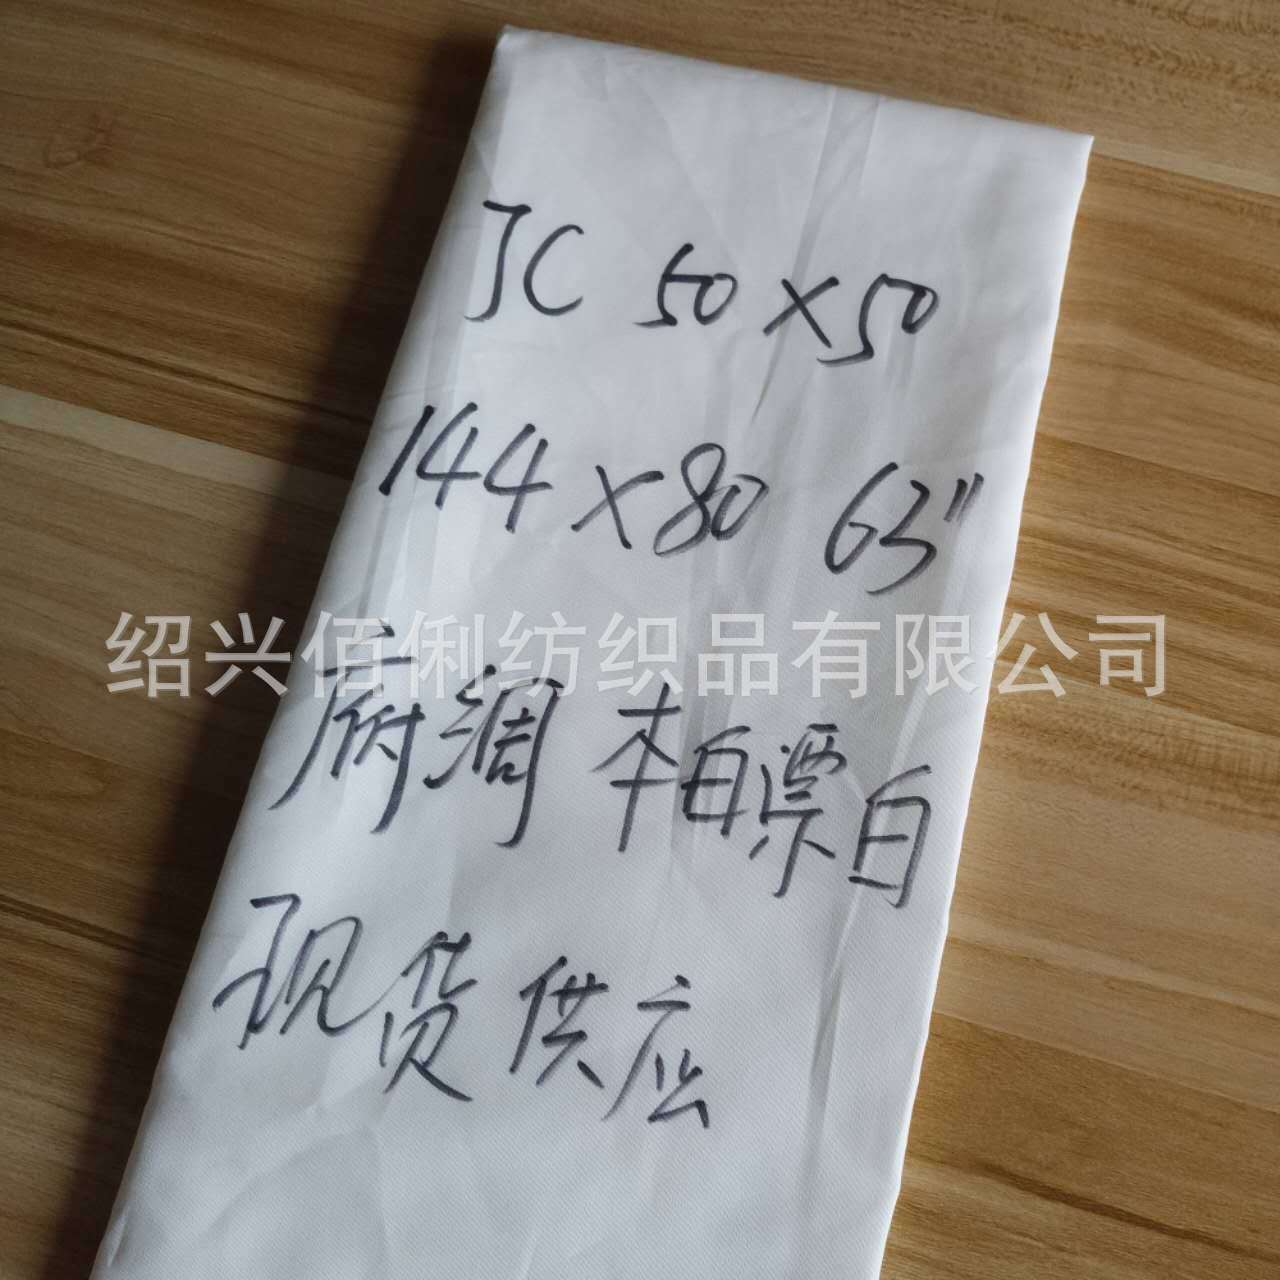 JC 50×50
144×80 63"
绍兴佰俐纺织品有限公司
府绸 本白漂白
现货供应